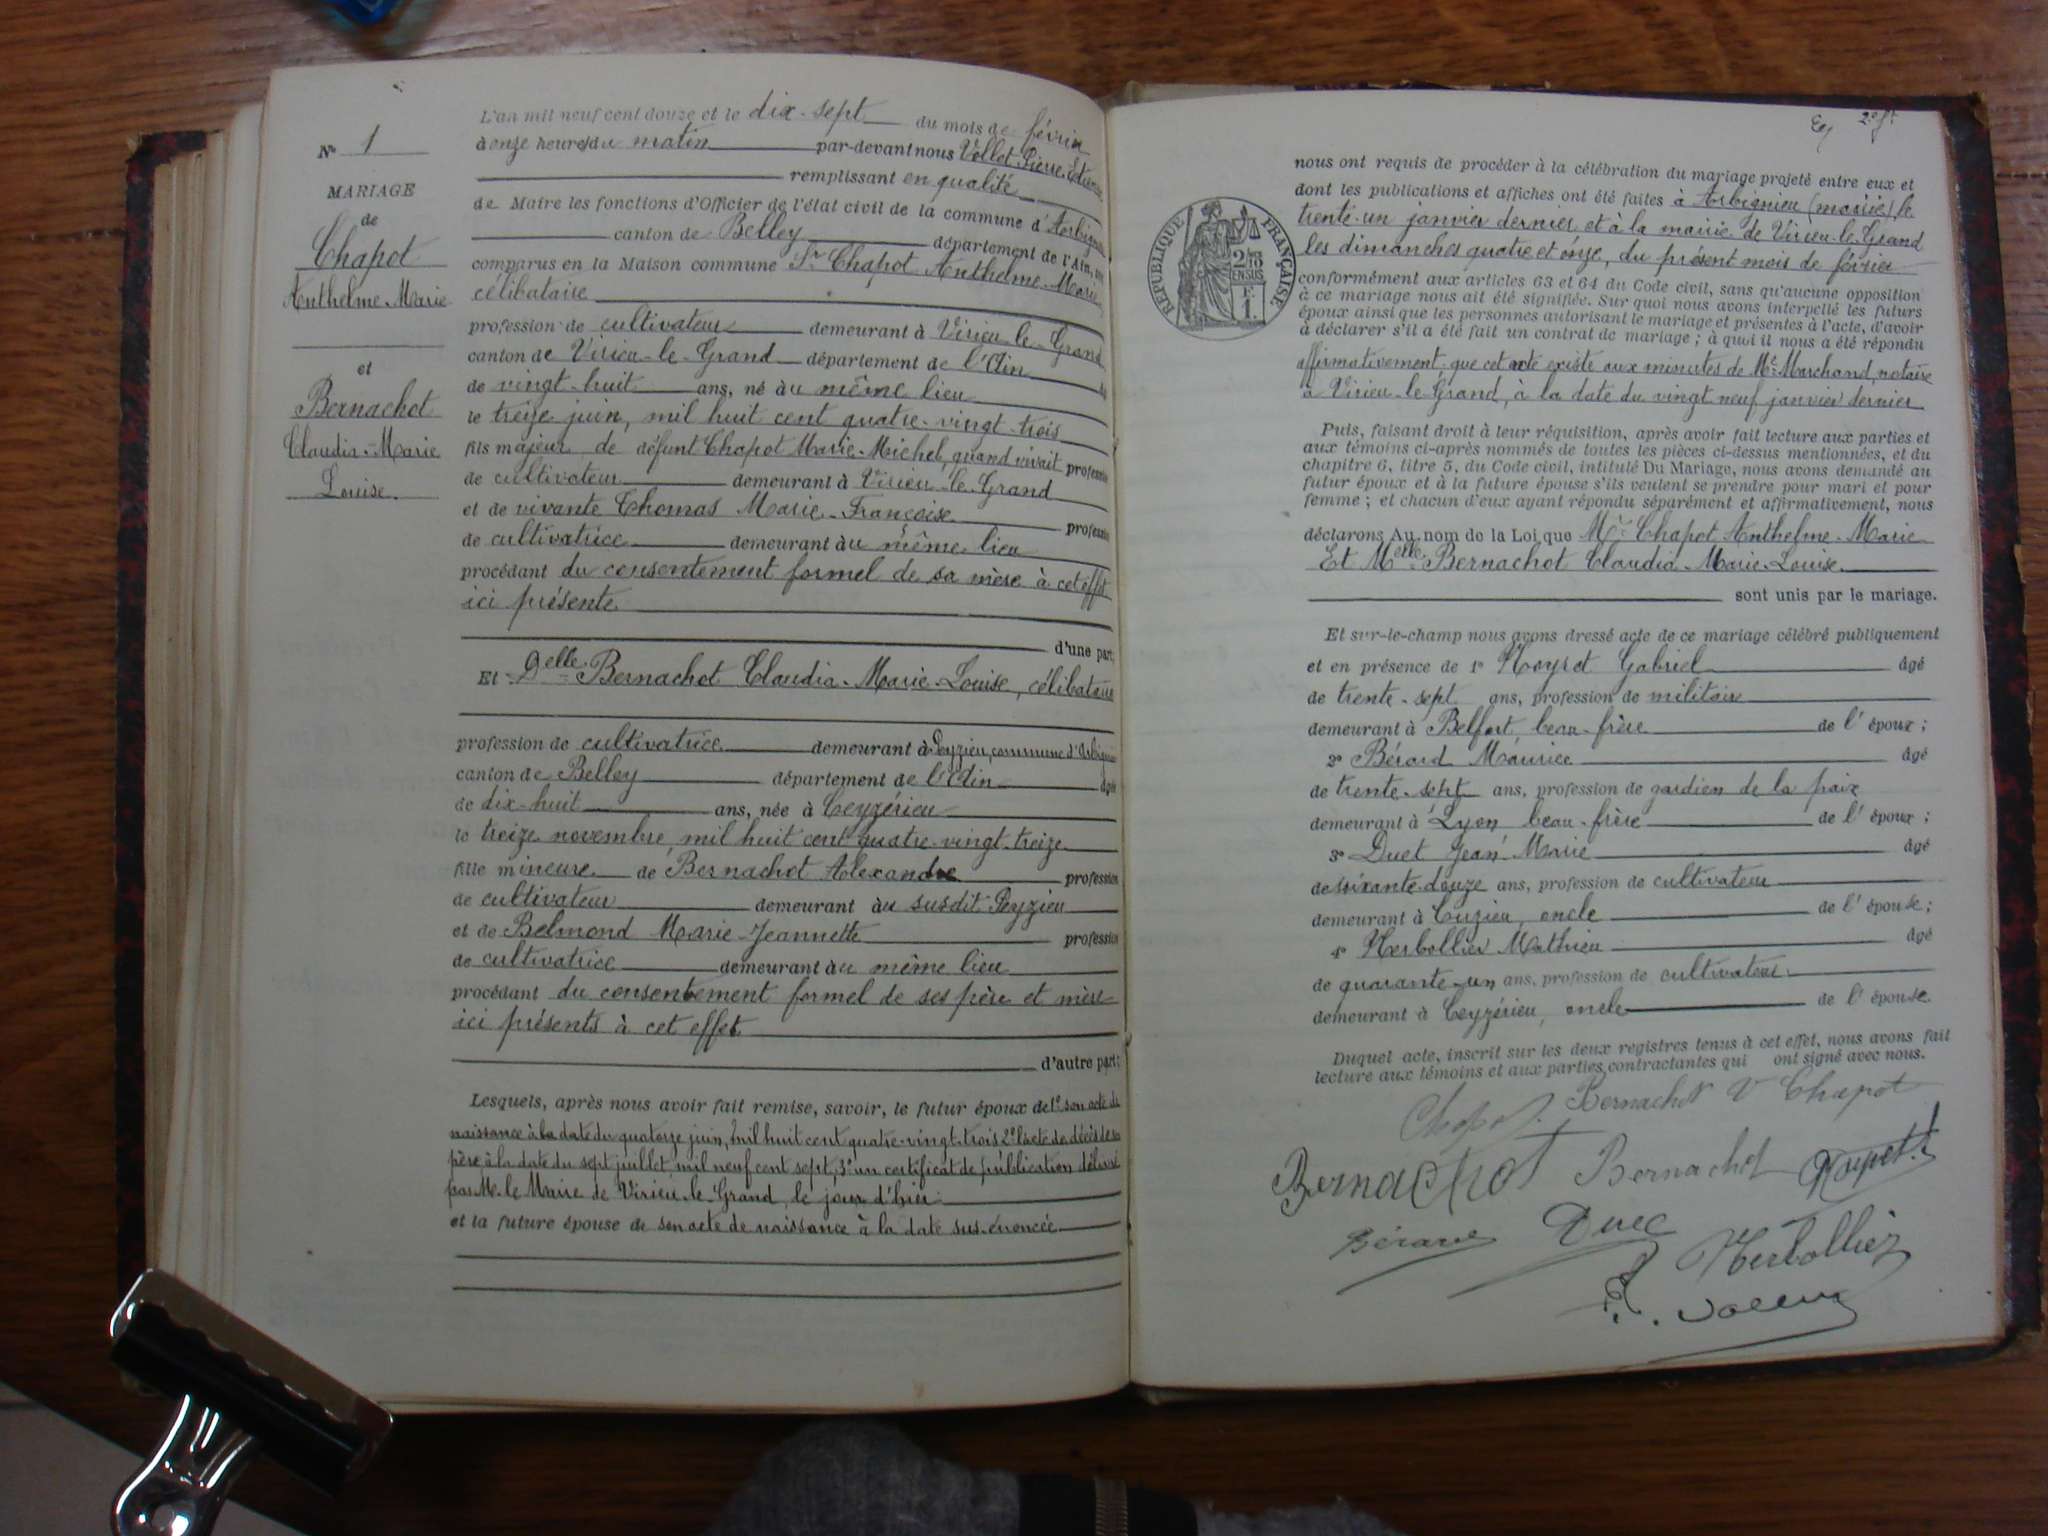 N° 1
MARIAGE
de
Chapot
Anthelme-Marie
et
Bernachot
Claudia-Marie
Louise.
L'an mil neuf cent douze et le dix-sept du mois de février
à onze heures du matin par-devant nous Vollet Pierre Etienne
remplissant en qualité
de Maire les fonctions d'Officier de l'état civil de la commune d'Arbignieu
canton de Belley département de l'Ain, ont
comparus en la Maison commune Sr Chapot Anthelme-Marie,
célibataire
profession de cultivateur demeurant à Virieu-le-Grand
canton de Virieu-le-Grand département de l'Ain
de vingt-huit ans, né au même lieu
le treize juin, mil huit cent quatre-vingt-trois
fils majeur de défunt Chapot Marie-Michel, quand vivait profession
de cultivateur demeurant à Virieu-le-Grand
et de vivante Thomas Marie-Françoise profession
de cultivatrice demeurant au même lieu
procédant du consentement formel de sa mère à cet effet
ici présente
d'une part;
Et Delle Bernachot Claudia-Marie-Louise, célibataire
profession de cultivatrice demeurant à Peyzieu, commune d'Arbignieu
canton de Belley département de l'Ain âgée
de dix-huit ans, née à Ceyzérieu
le treize novembre, mil huit cent quatre-vingt-treize
fille mineure de Bernachot Alexandre profession
de cultivateur demeurant au susdit Peyzieu
et de Belmond Marie-Jeannette profession
de cultivatrice demeurant au même lieu
procédant du consentement formel de ses père et mère
ici présents à cet effet
d'autre part:
Lesquels, après nous avoir fait remise, savoir, le futur époux de 1° son acte de
naissance à la date du quatorze juin, mil huit cent quatre-vingt-trois 2° l'acte de décès de son
père à la date du sept juillet mil neuf cent sept, 3° un certificat de publication délivré
par M. le Maire de Virieu-le-Grand, le jour d'hier
et la future épouse de son acte de naissance à la date sus-énoncée
2e ft
RÉPUBLIQUE FRANÇAISE
2/10 EN SUS
F.
1.
nous ont requis de procéder à la célébration du mariage projeté entre eux et
dont les publications et affiches ont été faites à Arbignieu (mairie) le
trente-un janvier dernier et à la mairie de Virieu-le-Grand
les dimanches quatre et onze, du présent mois de février
conformément aux articles 63 et 64 du Code civil, sans qu'aucune opposition
à ce mariage nous ait été signifiée. Sur quoi nous avons interpellé les futurs
époux ainsi que les personnes autorisant le mariage et présentes à l'acte, d'avoir
à déclarer s'il a été fait un contrat de mariage; à quoi il nous a été répondu
affirmativement que cet acte existe aux minutes de Me Marchand, notaire
à Virieu-le-Grand, à la date du vingt neuf janvier dernier
Puis, faisant droit à leur réquisition, après avoir fait lecture aux parties et
aux témoins ci-après nommés de toutes les pièces ci-dessus mentionnées, et du
chapitre 6, titre 5, du Code civil, intitulé Du Mariage, nous avons demandé au
futur époux et à la future épouse s'ils veulent se prendre pour mari et pour
femme; et chacun d'eux ayant répondu séparément et affirmativement, nous
déclarons Au nom de la Loi que Mr Chapot Anthelme-Marie
Et Melle Bernachot Claudia-Marie-Louise
sont unis par le mariage.
Et sur-le-champ nous avons dressé acte de ce mariage célébré publiquement
et en présence de 1° Noyret Gabriel âgé
de trente-sept ans, profession de militaire
demeurant à Belfort, beau-frère de l'époux;
2° Bérard Maurice âgé
de trente-sept ans, profession de gardien de la paix
demeurant à Lyon beau-frère de l'époux;
3° Duet Jean-Marie âgé
de soixante-douze ans, profession de cultivateur
demeurant à Cuzieu, oncle de l'épouse;
4° Herbollier Mathieu âgé
de quarante-un ans, profession de cultivateur
demeurant à Ceyzérieu, oncle de l'épouse
Duquel acte, inscrit sur les deux registres tenus à cet effet, nous avons fait
lecture aux témoins et aux parties contractantes qui ont signé avec nous.
Chapot Bernachot V Chapot
Bernachot Bernachot Noyret
Bérard Duet
Herbollier